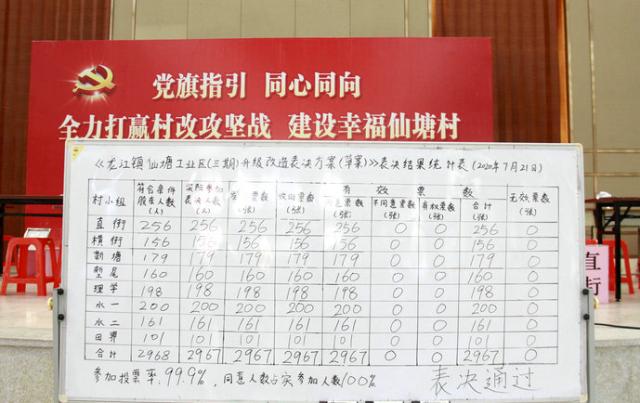 党旗指引 同心同向
全力打赢村改攻坚战 建设幸福仙塘村
《龙江镇仙塘工业区(三期)升级改造表决方案(草案)》表决结果统计表(2020年7月21日)
有效票数
村小组 符合条件股东人数(人) 实际参加表决人数(人) 票数(张) 收回票数(张) 同意票数(张) 不同意票数(张) 弃权票数(张) 合计(张) 无效票数(张)
直街 256 256 256 256 256 0 0 256 0
横街 156 156 156 156 156 0 0 156 0
塘 179 179 179 179 179 0 0 179 0
尾 160 160 160 160 160 0 0 160 0
理学 198 198 198 198 198 0 0 198 0
永一 200 200 200 200 200 0 0 200 0
永二 161 161 161 161 161 0 0 161 0
日 101 101 101 101 101 0 0 101 0
合计 2968 2967 2967 2967 2967 0 0 2967 0
参加投票率:99.9%,同意人数占实参加人数100%
表决通过
直街